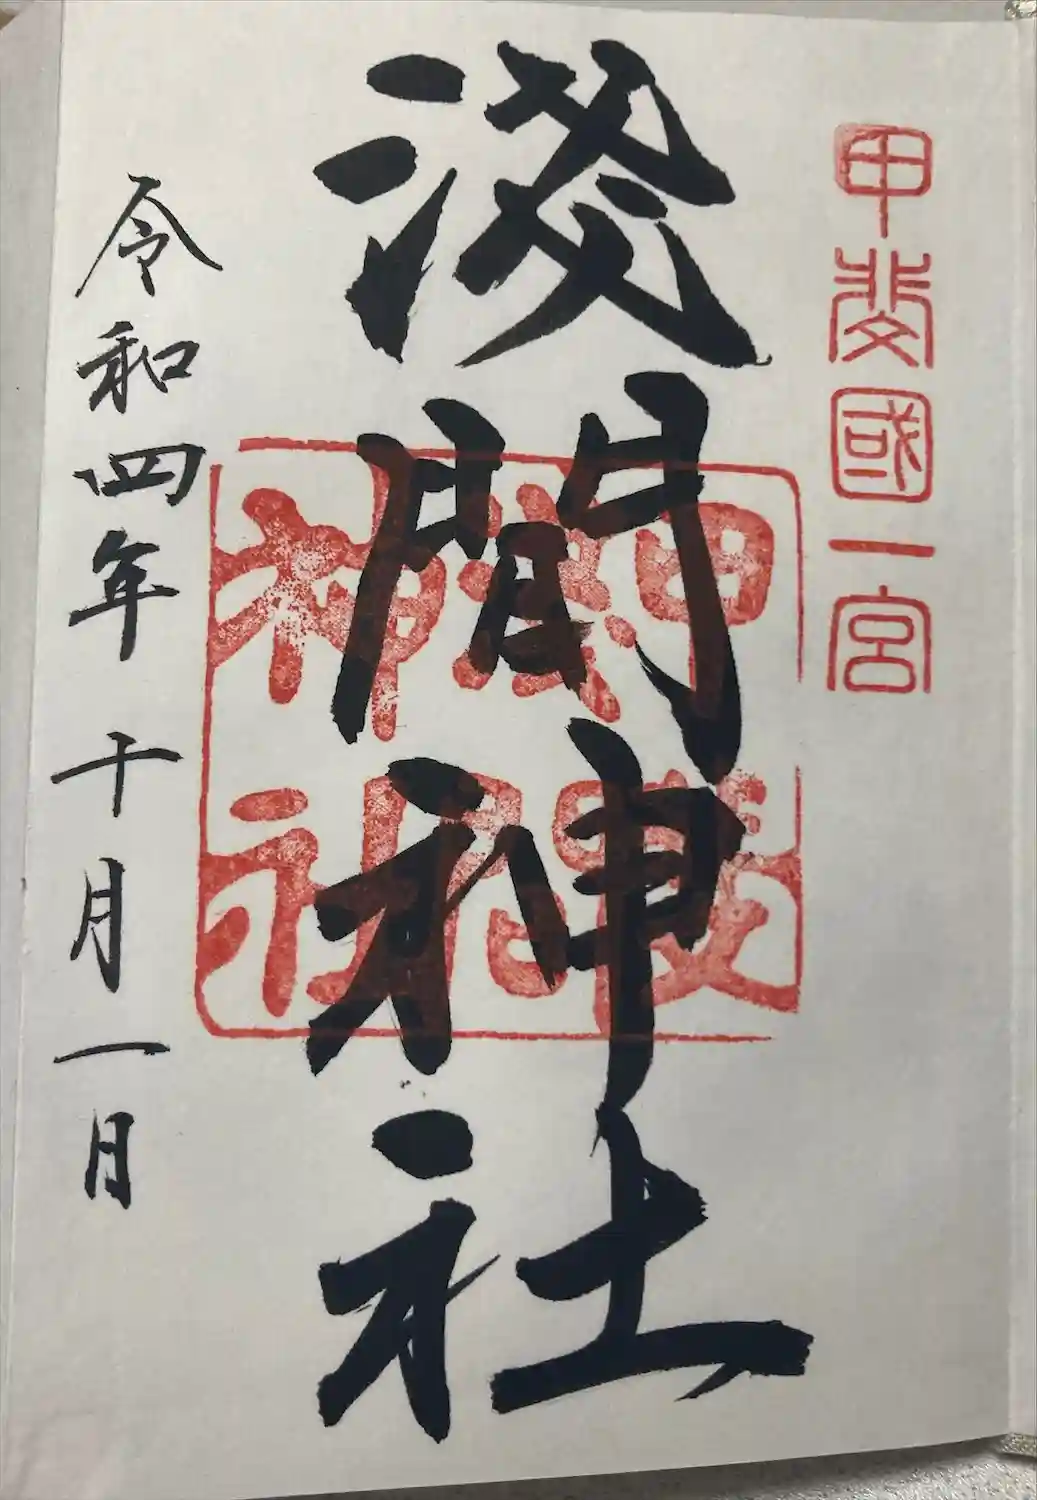 甲斐國一宮
淺間神社
甲斐
淺間
神社
令和四年十月一日